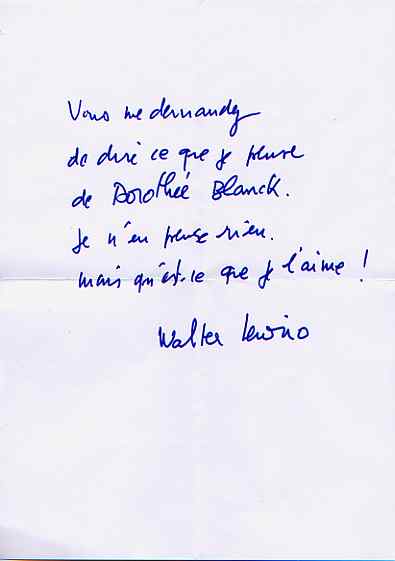 Vous me demandez
de dire ce que je pense
de Dorothée Blanck.
je n'en pense rien.
mais qu'est-ce que je l'aime !
Walter Lewino